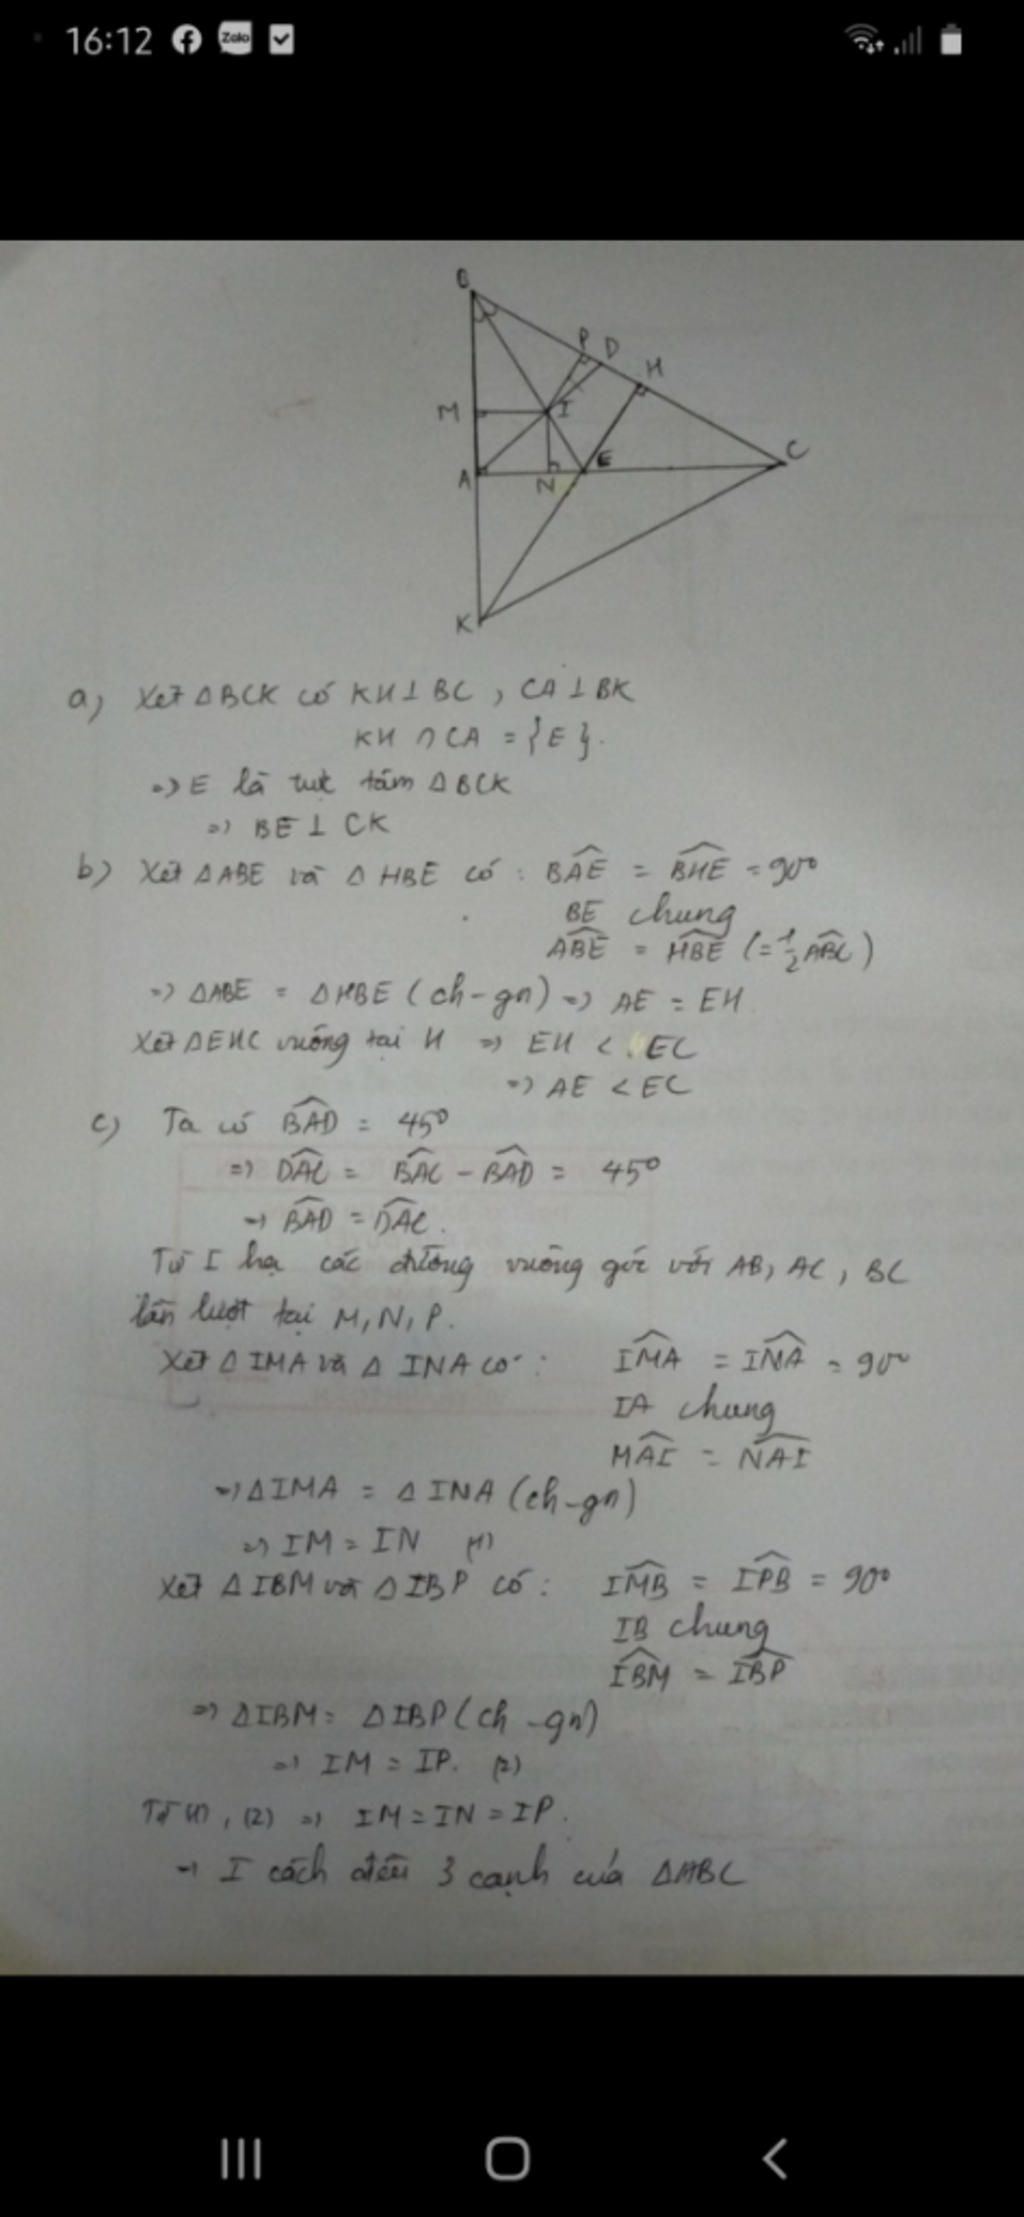 16:12
Zalo
B
P D H
M I
A N E C
K
a) Xét ΔBCK có KH⊥BC, CA⊥BK
KH ∩ CA = {E}.
=> E là trực tâm ΔBCK
=> BE ⊥ CK
b) Xét ΔABE và ΔHBE có: BAE^ = BHE^ = 90°
BE chung
ABE^ = HBE^ (= 1/2 ABC^)
=> ΔABE = ΔHBE (ch-gn) => AE = EH
Xét ΔEHC vuông tại H => EH < EC
=> AE < EC
c) Ta có BAD^ = 45°
=> DAC^ = BAC^ - BAD^ = 45°
=> BAD^ = DAC^.
Từ I hạ các đường vuông góc với AB, AC, BC
lần lượt tại M, N, P.
Xét ΔIMA và ΔINA có: IMA^ = INA^ = 90°
IA chung
MAI^ = NAI^
=> ΔIMA = ΔINA (ch-gn)
=> IM = IN (1)
Xét ΔIBM và ΔIBP có: IMB^ = IPB^ = 90°
IB chung
IBM^ = IBP^
=> ΔIBM = ΔIBP (ch-gn)
=> IM = IP. (2)
Từ (1), (2) => IM = IN = IP.
=> I cách đều 3 cạnh của ΔABC